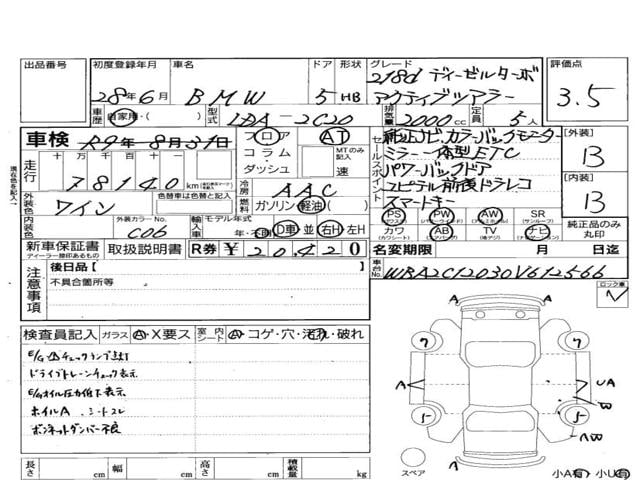 出品番号
初度登録年月
28年6月
車名
BMW
ドア
5
形状
HB
グレード
218d ディーゼルターボ
アクティブツアラー
評価点
3.5
車歴
自家用・( )
型式
LDA-2C20
排気量
2000cc
定員
5人
車検
R9年8月31日
走行
十万 万 千 百 十
78140km
フロア
コラム
ダッシュ
AT
MTのみ記入
速
セールスポイント
純正ナビ.カラーバックモニター
ミラー一体型ETC
パワーバックドア
ユピテル前後ドラレコ
スマートキー
【外装】
B
【内装】
B
外装色
ワイン
色替車は色替と記入
内装色
外装カラーNo.
C06
冷房
AAC
燃料
ガソリン 軽油・( )
輸入車
モデル年式
年・不明
D車 並 右H 左H
PS PW AW SR
(パワステ) (パワーウインドウ) (アルミホイール) (サンルーフ)
カワ AB TV ナビ
(カワシート) (エアバッグ) (地デジ) (ナビゲーション)
純正品のみ丸印
新車保証書
ディーラー捺印あるもの
取扱説明書
R券 ¥20,420
名変期限 月 日迄
車台No.
WBA2C12030V612566
注意事項
後日品【
不具合箇所等
ロック車
検査員記入
ガラス A・X要ス
室内シート A・コゲ・穴・汚れ・破れ
E/Gチェックランプ点灯
ドライブトレーンチェック表示
E/Gオイル圧力低下表示
ホイルA . シートスレ
ボンネットダンパー不良
A
7 7
A A UA
W
5 5
AW
A
スペア
小A有 小U有
長さ cm
幅 cm
高さ cm
積載量 kg